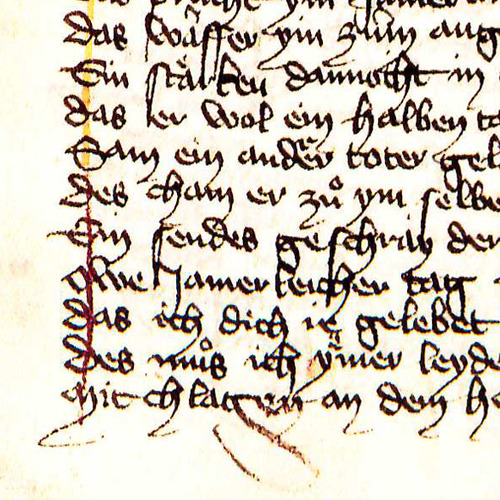 das wåsser ym zům aug
Ein starken dannocht in
das er wol ein halben to
Sam ein ander toter gel
des cham er zů ym selbe
Ein sendes geschray der
owe Jamerleicher tag
das ich dich ie gelebet
Des můs ich ymer leyde
mit chlagen an dem he